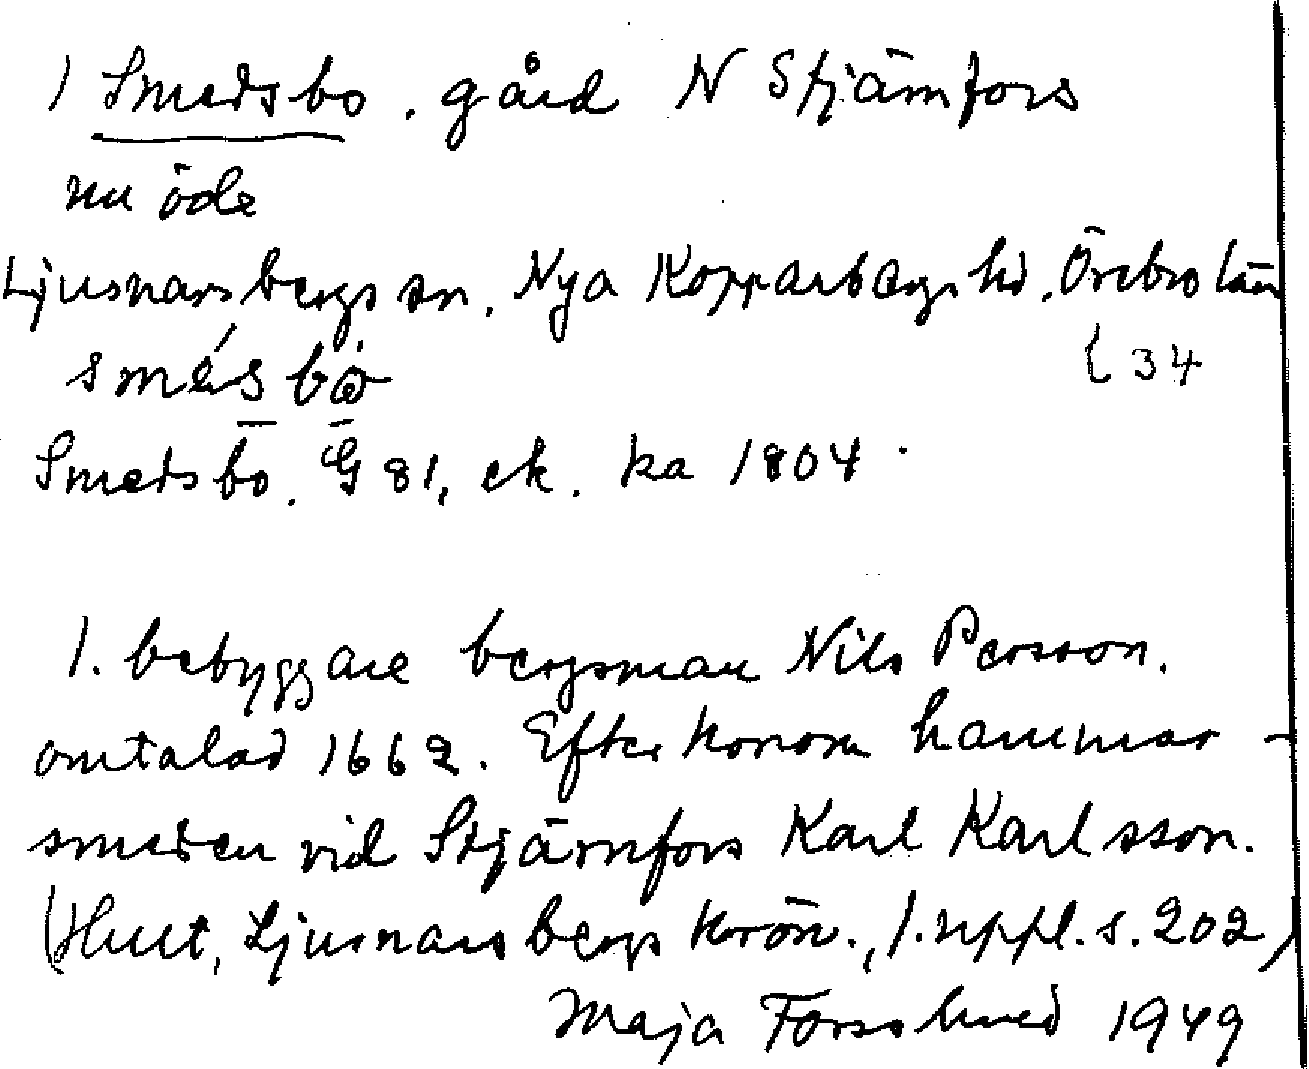 1 Smedsbo. gård N Stjärnfors
nu öde
Ljusnarsbergs sn. Nya Kopparbergs hd. Örebro län
smésbo 34
Smedsbo. G 81, ek. ka 1804.
1. bebyggare bergsman Nils Persson.
omtalad 1662. Efter honom hammar-
smeden vid Stjärnfors Karl Karlsson.
(Hult, Ljusnarsbergs krön., 1. uppl. s. 202)
Maja Forsslund 1949